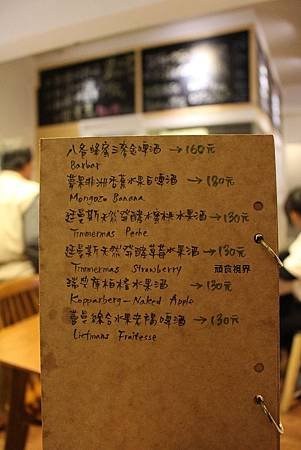 八爸蜂蜜三麥金啤酒 → 160元
Barbar
夢果非洲香蕉水果白啤酒 → 180元
Mongozo Banana
廷曼斯天然發酵水蜜桃水果酒 → 130元
Timmermas Peche
廷曼斯天然發酵草莓水果酒 → 130元
Timmermas Strawberry
頑食視界
瑞典蘋柏格水果酒 → 130元
Kopparberg - Naked Apple
蔓曼綜合水果老褐啤酒 → 130元
Liefmans Fruitesse